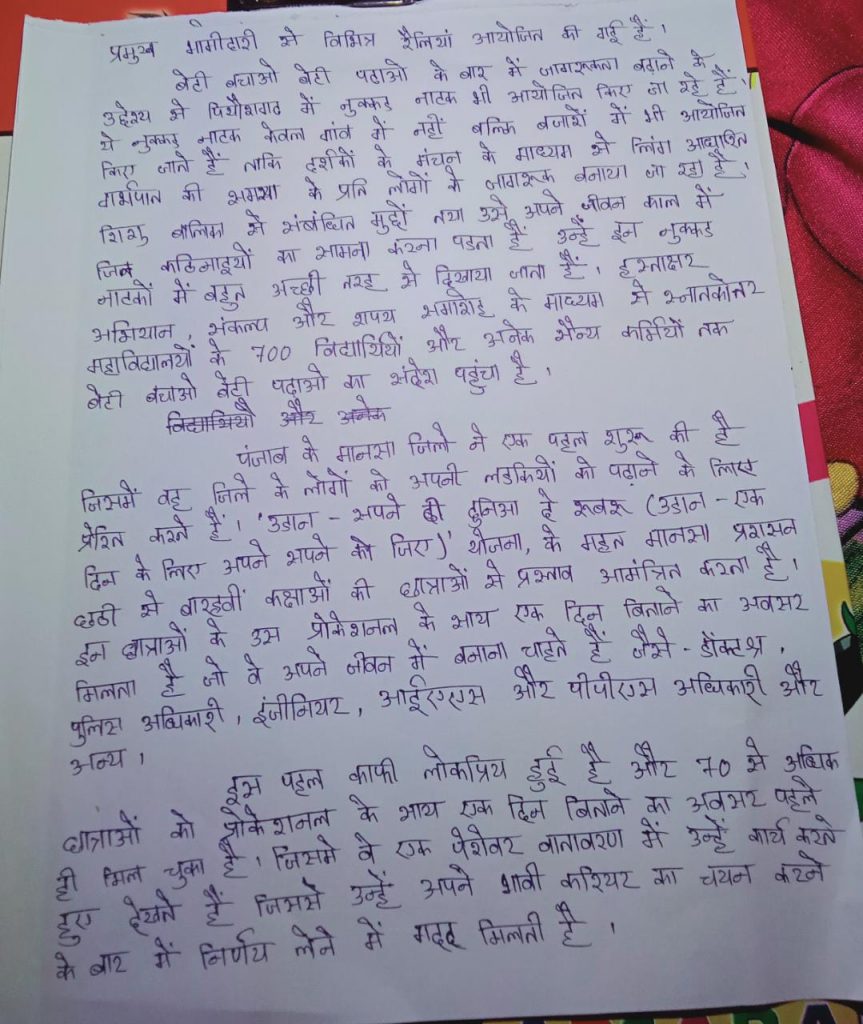 प्रमुख भागीदारी से विभिन्न रैलियां आयोजित की गई हैं।
बेटी बचाओ बेटी पढाओ के बार में जागरूकता बढाने के
उद्देश्य से पिथौरागढ में नुक्कड नाटक भी आयोजित किए जा रहे हैं।
ये नुक्कड नाटक केवल गांव में नहीं बल्कि बजारों में भी आयोजित
किए जाते हैं ताकि दर्शकों के मंचन के माध्यम से लिंग आधारित
गर्भपात की समस्या के प्रति लोगों में जागरूक बनाया जा रहा है।
शिशु बालिका से संबंधित मुद्दों तथा उसे अपने जीवन काल में
जिन कठिनाइयों का सामना करना पडता है उन्हें इन नुक्कड
नाटकों में बहुत अच्छी तरह से दिखाया जाता हैं। हस्ताक्षर
अभियान, संकल्प और शपथ समारोह के माध्यम से स्नातकोत्तर
महाविद्यालयों के 700 विद्यार्थियों और अनेक सैन्य कर्मियों तक
बेटी बचाओ बेटी पढाओ का संदेश पहुंचा है।
विद्यार्थियों और अनेक
पंजाब के मानसा जिले ने एक पहल शुरू की है
जिसमें वह जिले के लोगों को अपनी लडकियों को पढाने के लिए
प्रेरित करते हैं। 'उडान - सपने दी दुनिआ दे रूबरू (उडान - एक
दिन के लिए अपने सपने को जिए)' योजना, के महत मानसा प्रशासन
छठी से बारहवीं कक्षाओं की छात्राओं से प्रस्ताव आमंत्रित करता है।
इन छात्राओं के उस प्रोफेशनल के साथ एक दिन बिताने का अवसर
मिलता है जो वे अपने जीवन में बनाना चाहते हैं जैसे - डॉक्टर,
पुलिस अधिकारी, इंजीनियर, आईएएस और पीपीएस अधिकारी और
अन्य।
इस पहल काफी लोकप्रिय हुई है और 70 से अधिक
छात्राओं को प्रोफेशनल के साथ एक दिन बिताने का अवसर पहले
ही मिल चुका है। जिसमे वे एक पेशेवर वातावरण में उन्हें कार्य करते
हुए देखते हैं जिससे उन्हें अपने भावी करियर का चयन करने
के बार में निर्णय लेने में मदद मिलती है।